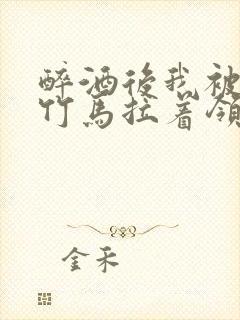 醉酒後我被
竹馬拉着領
金禾